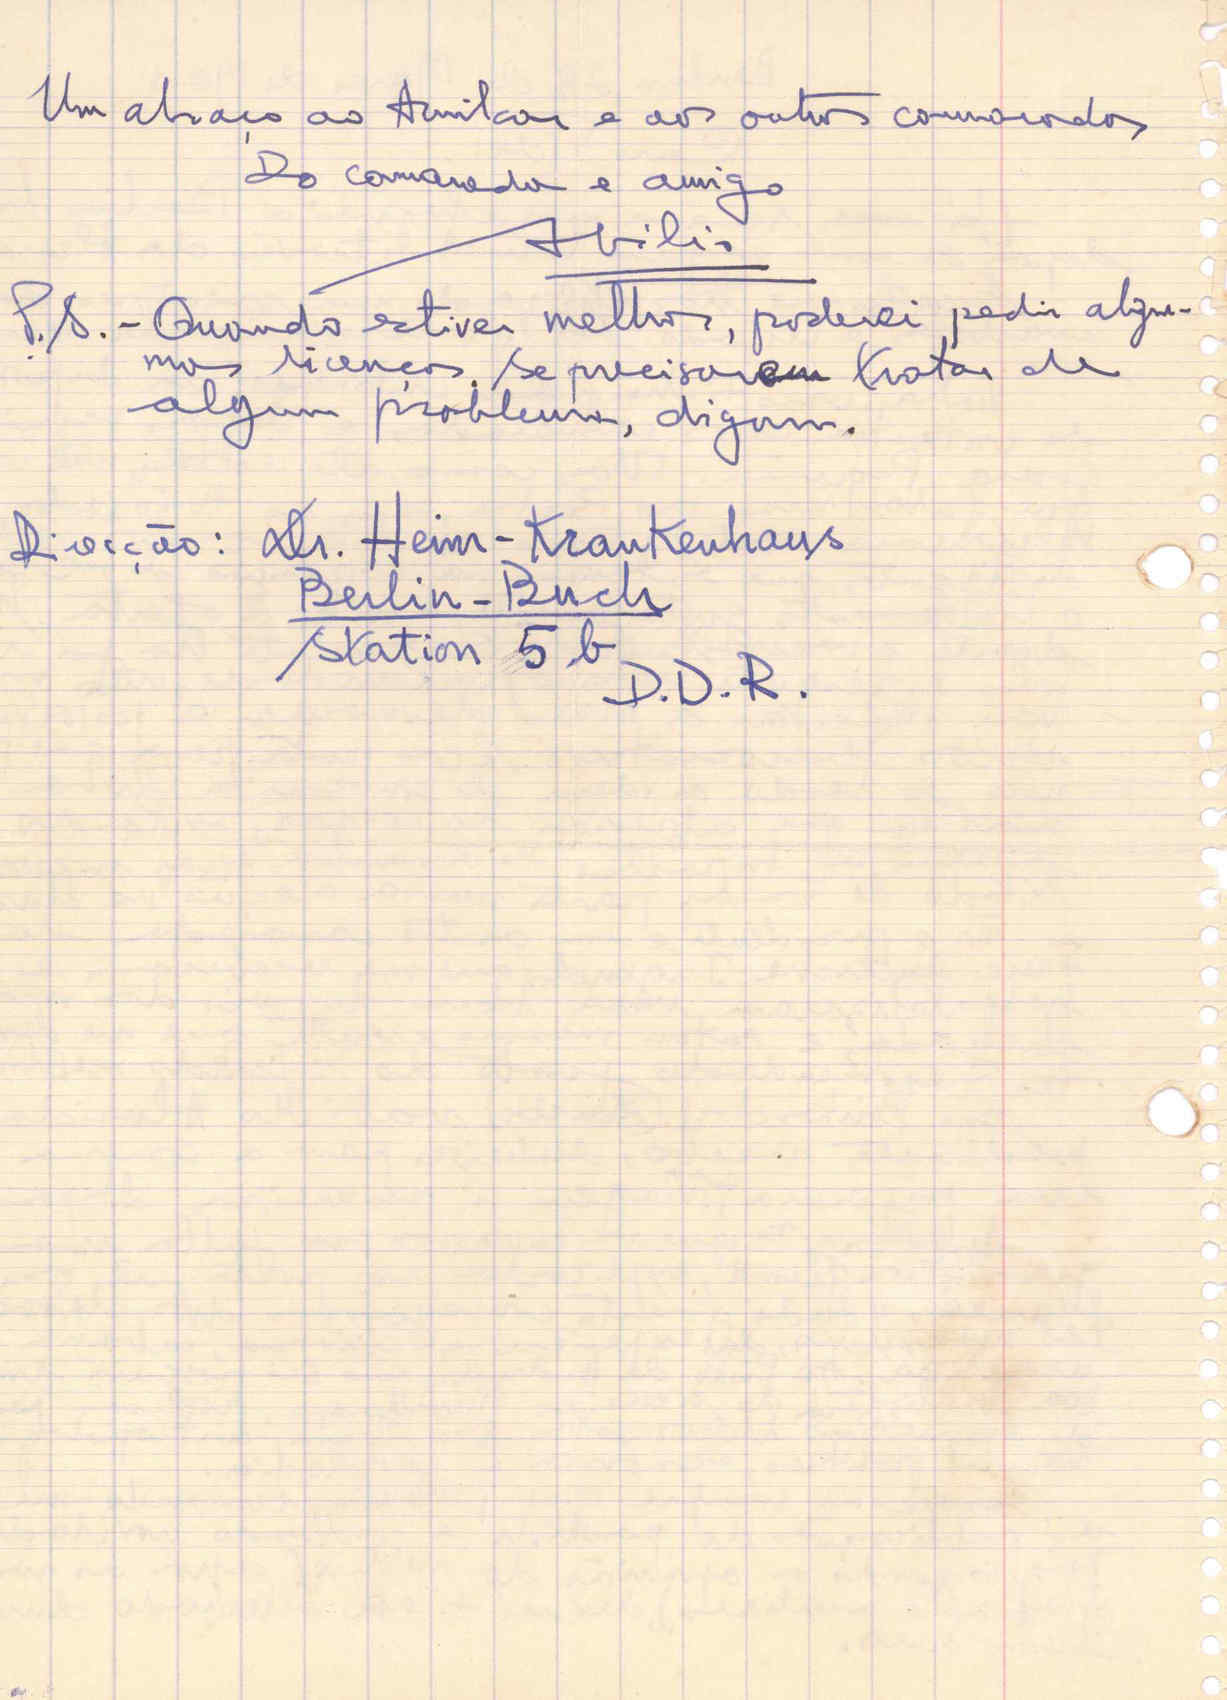 Um abraço ao Amilcar e aos outros camaradas
Do camarada e amigo
Abílio
P.S. - Quando estiver melhor, poderei pedir algu-
mas licenças. Se precisarem tratar de
algum problema, digam.
Direcção: Dr. Heim-Krankenhaus
Berlin-Buch
Station 5 b
D.D.R.